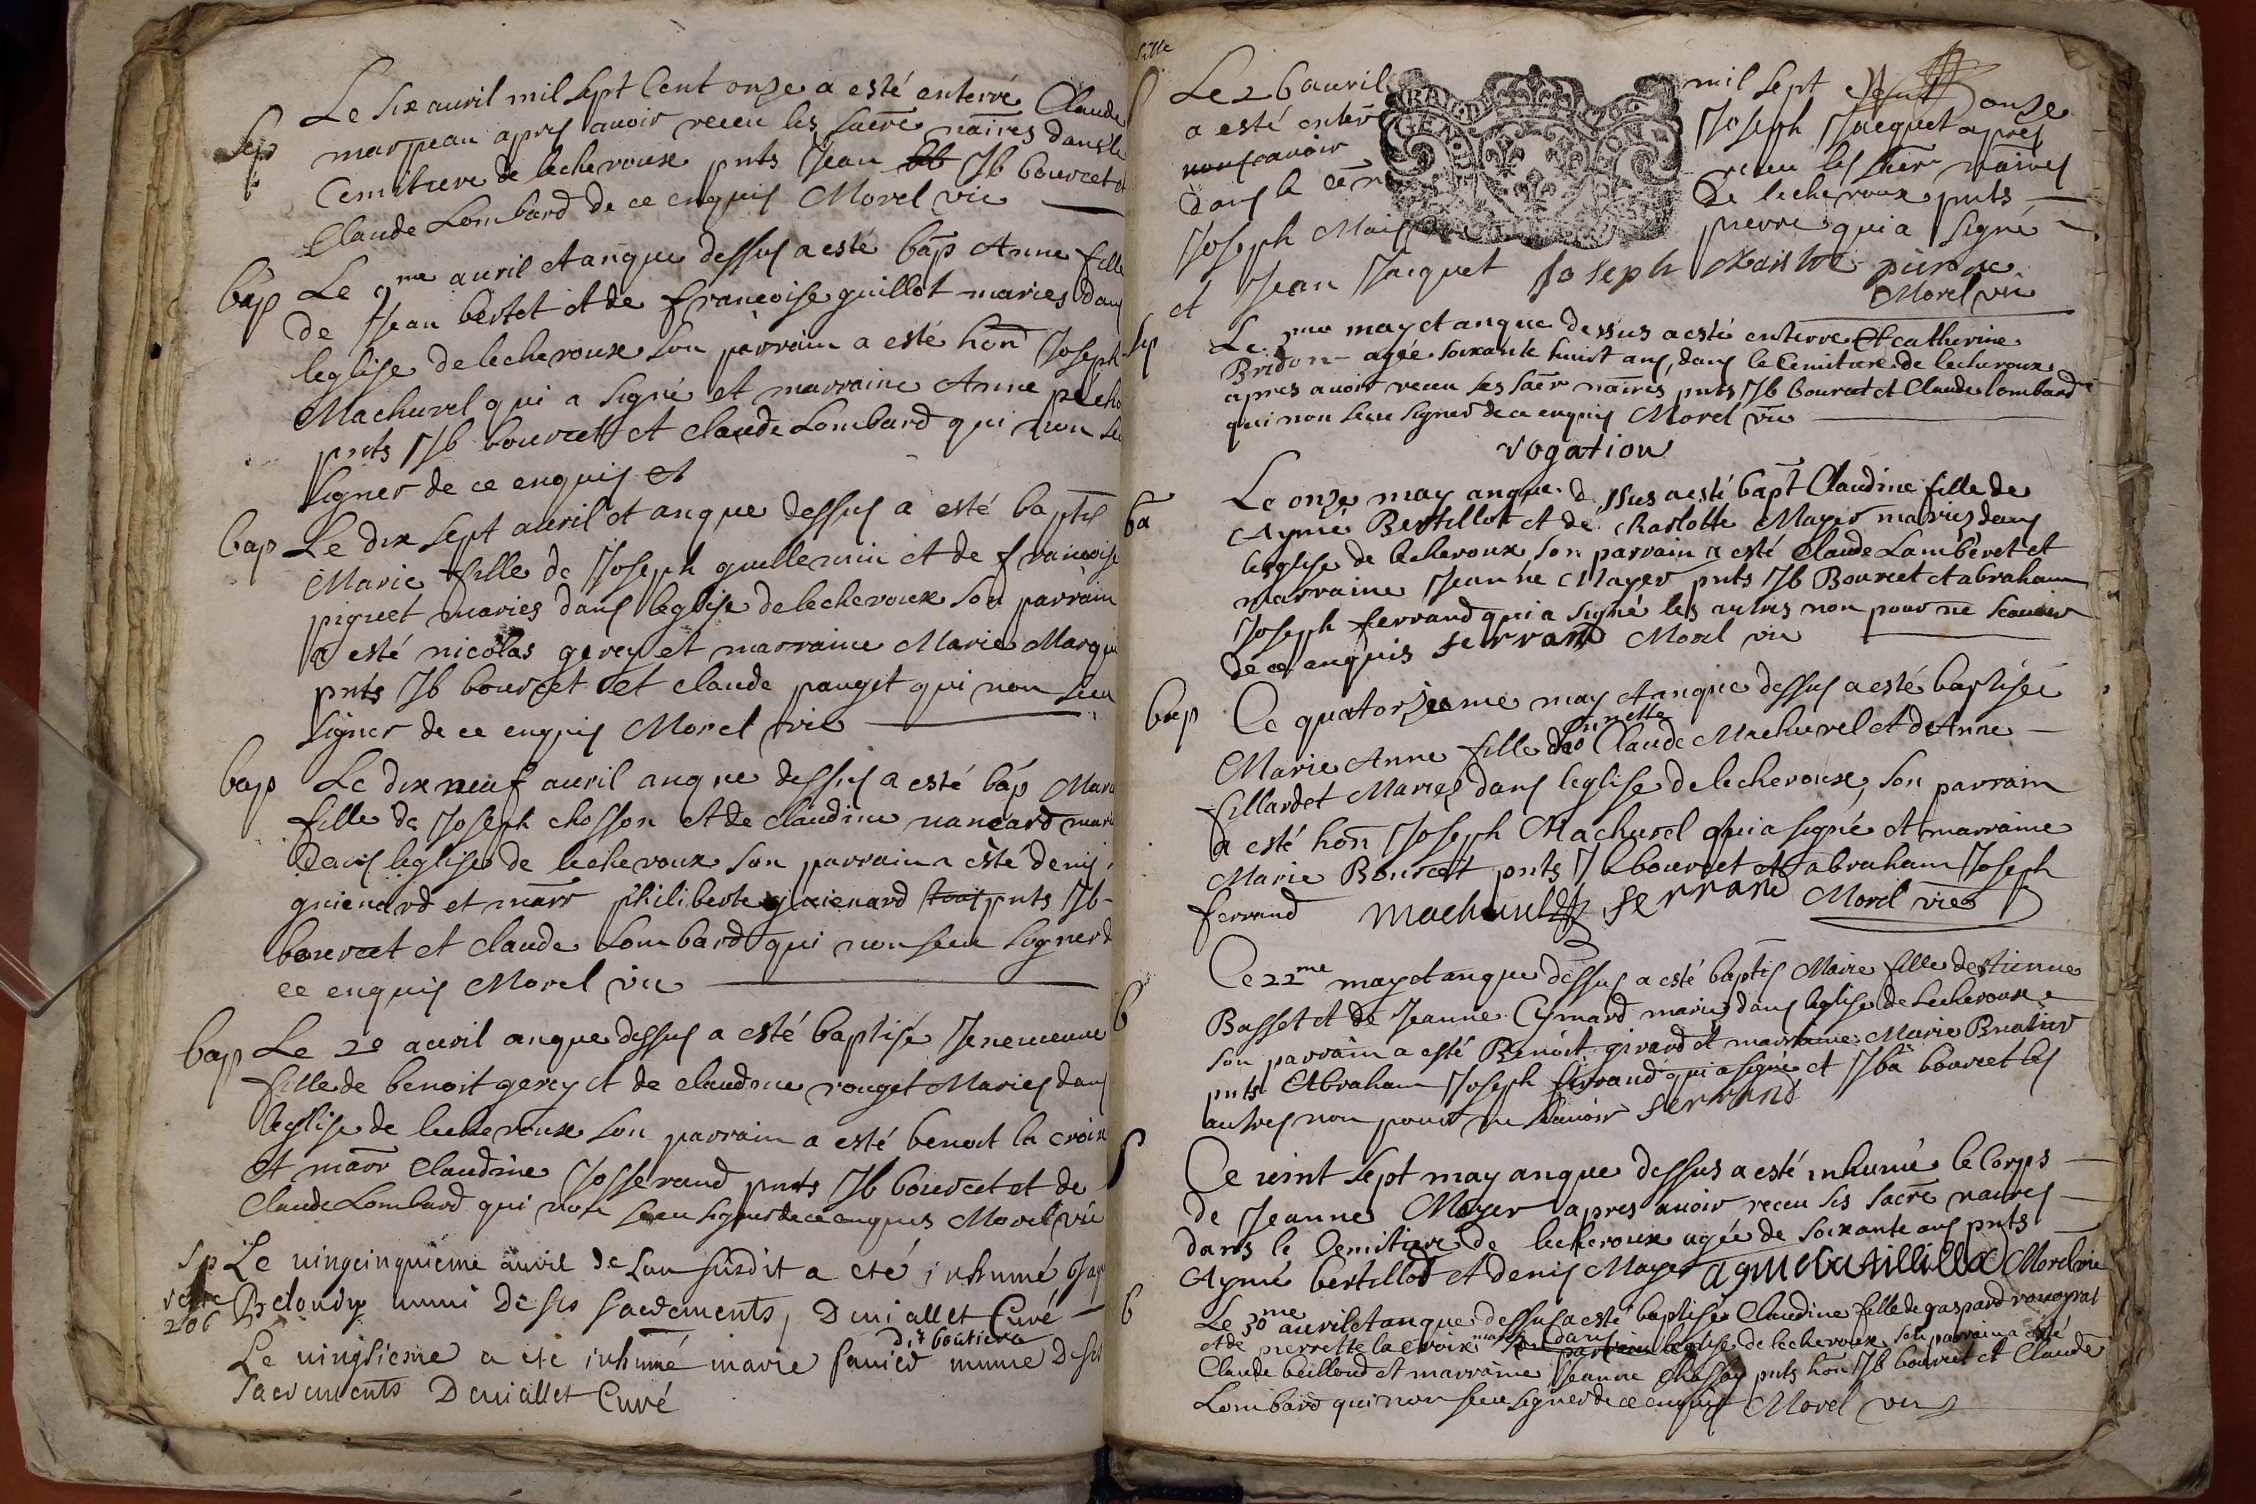 Sep
Le six auril mil sept Cent onze a esté enterré Claude
marpeau apres auoir receu les sacre naires dans le
Cemitiere de lecheroux pnts Jean Jb bourcet et
Claude Lombard de ce enquis Morel vic
bap
Le 9me auril et anque dessus a esté bap Anne fille
de Jean bertet et de francoise guillot maries dans
leglise de lecheroux son parrain a esté hon Joseph
Machurel qui a signé et marraine Anne
pnts Jb bourcet et claude Lombard qui non seu
signer de ce enquis et
bap
Le dix sept auril et anque dessus a esté baptis
Marie fille de Joseph guillemin et de francoise
piquet maries dans leglise de lecheroux son parrain
a esté nicolas gerey et marraine Marie
pnts Jb bourcet et claude pauget qui non seu
signer de ce enquis Morel vic
bap
Le dix neuf auril anque dessus a esté bap
fille de Joseph chosson et de claudine nancard
dans leglise de lecheroux son parrain a esté denis
guienard et marr philiberte guienard pnts Jb
bourcet et claude Lombard qui non seu signer d
ce enquis Morel vic
bap
Le 20 auril anque dessus a esté baptisé
fille de benoit gerey et de claudine rouget Maries dans
leglise de lecheroux son parrain a esté benoit la croix
et marr Claudine Josserand pnts Jb bourcet et de
Claude Lombard qui non seu signer de ce enquis Morel vic
Sp
Le uingcinquieme auril de lan susdit a eté inhumé
muni de ses sacrements, Deniallet Curé
206
dit boutiera
Le uingtieme a ete inhumé marie munie de ses
sacrements Deniallet Curé
S
Le 26 auril mil sept cent onze
a esté enter Joseph Jacquet apres
auoir receu les sacr naires
dans le cem de lecheroux pnts
Joseph pierre qui a signé
et Jean Jacquet Joseph pierre
Morel vic
GEN
Sep
Le may et anque dessus a esté enterre catherine
Bridon agée soixante huict ans, dans le Cemitiere de lecheroux
apres auoir receu ses sacr naires pnts Jb bourcet et Claude lombard
qui non seu signer de ce enquis Morel vic
vogation
ba
Le onze may anque dessus a esté bapt Claudine fille de
Aymé Bertillot et de charlotte Mayer maries dans
leglise de lecheroux son parrain a esté Claude Lamberet et
marraine Jeanne Mayer pnts Jb Bourcet et abraham
Joseph ferrand qui a signé les autres non pour ne scauoir
de ce enquis ferrand Morel vic
bap
Ce quatorzieme may et anque dessus a esté baptisée
Marie Anne fille de Claude Machurel et d'Anne
fillardet Maries dans leglise de lecheroux, son parrain
a esté hon Joseph Machurel qui a signé et marraine
Marie Bourcet pnts Jb bourcet et abraham Joseph
ferrand machurel ferrand Morel vic
b
Ce 22me may et anque dessus a esté baptis Marie fille destienne
Basset et de Jeanne Aymard maries dans leglise de Lecheroux
son parrain a esté Benoit girard et marraine Marie
pnts Abraham Joseph ferrand qui a signé et Jba bourcet les
autres non pour ne scauoir ferrand
S
Ce uint sept may anque dessus a esté inhumé le Corps
de Jeanne Mayer apres auoir receu ses sacre naires
dans le Cemitiere de lecheroux agée de soixante ans pnts
Aymé bertillot et denis Mayer Morel vic
b
Le 30me auril et anque dessus a esté baptisé Claudine fille de gaspard
et de pierrette la croix dans leglise de lecheroux son parrain a esté
Claude beilloud et marraine Jeanne pnts hon Jb bourcet et Claude
Lombard qui non seu signer de ce enquis Morel vic